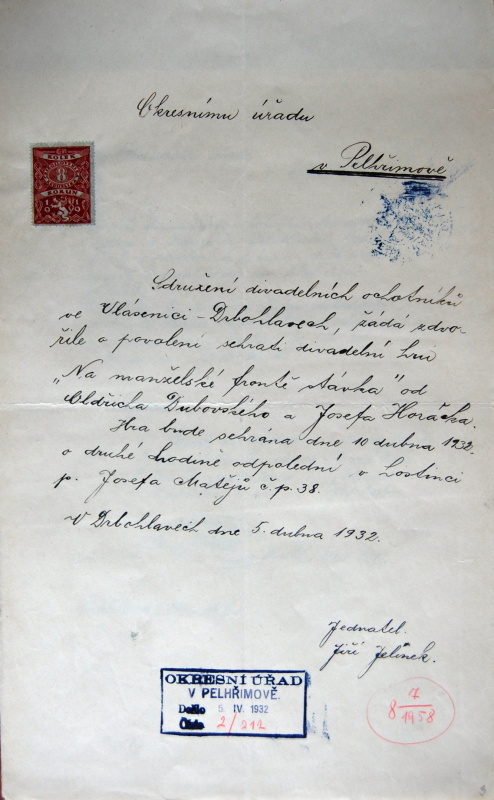 Okresnímu úřadu
v Pelhřimově
KOLEK
8
KORUN
Sdružení divadelních ochotníků
ve Vlásenici-Drbohlavech, žádá zdvo-
řile o povolení sehrati divadelní hru
„Na manželské frontě stávka" od
Oldřicha Dubovského a Josefa Horáčka.
Hra bude sehrána dne 10 dubna 1932.
o druhé hodině odpolední v hostinci
p. Josefa Matějů č.p. 38.
V Drbohlavech dne 5. dubna 1932.
Jednatel.
Jiří Jelínek.
OKRESNÍ ÚŘAD
V PELHŘIMOVĚ.
Došlo 5. IV. 1932
Číslo 2/212
8 7/1958